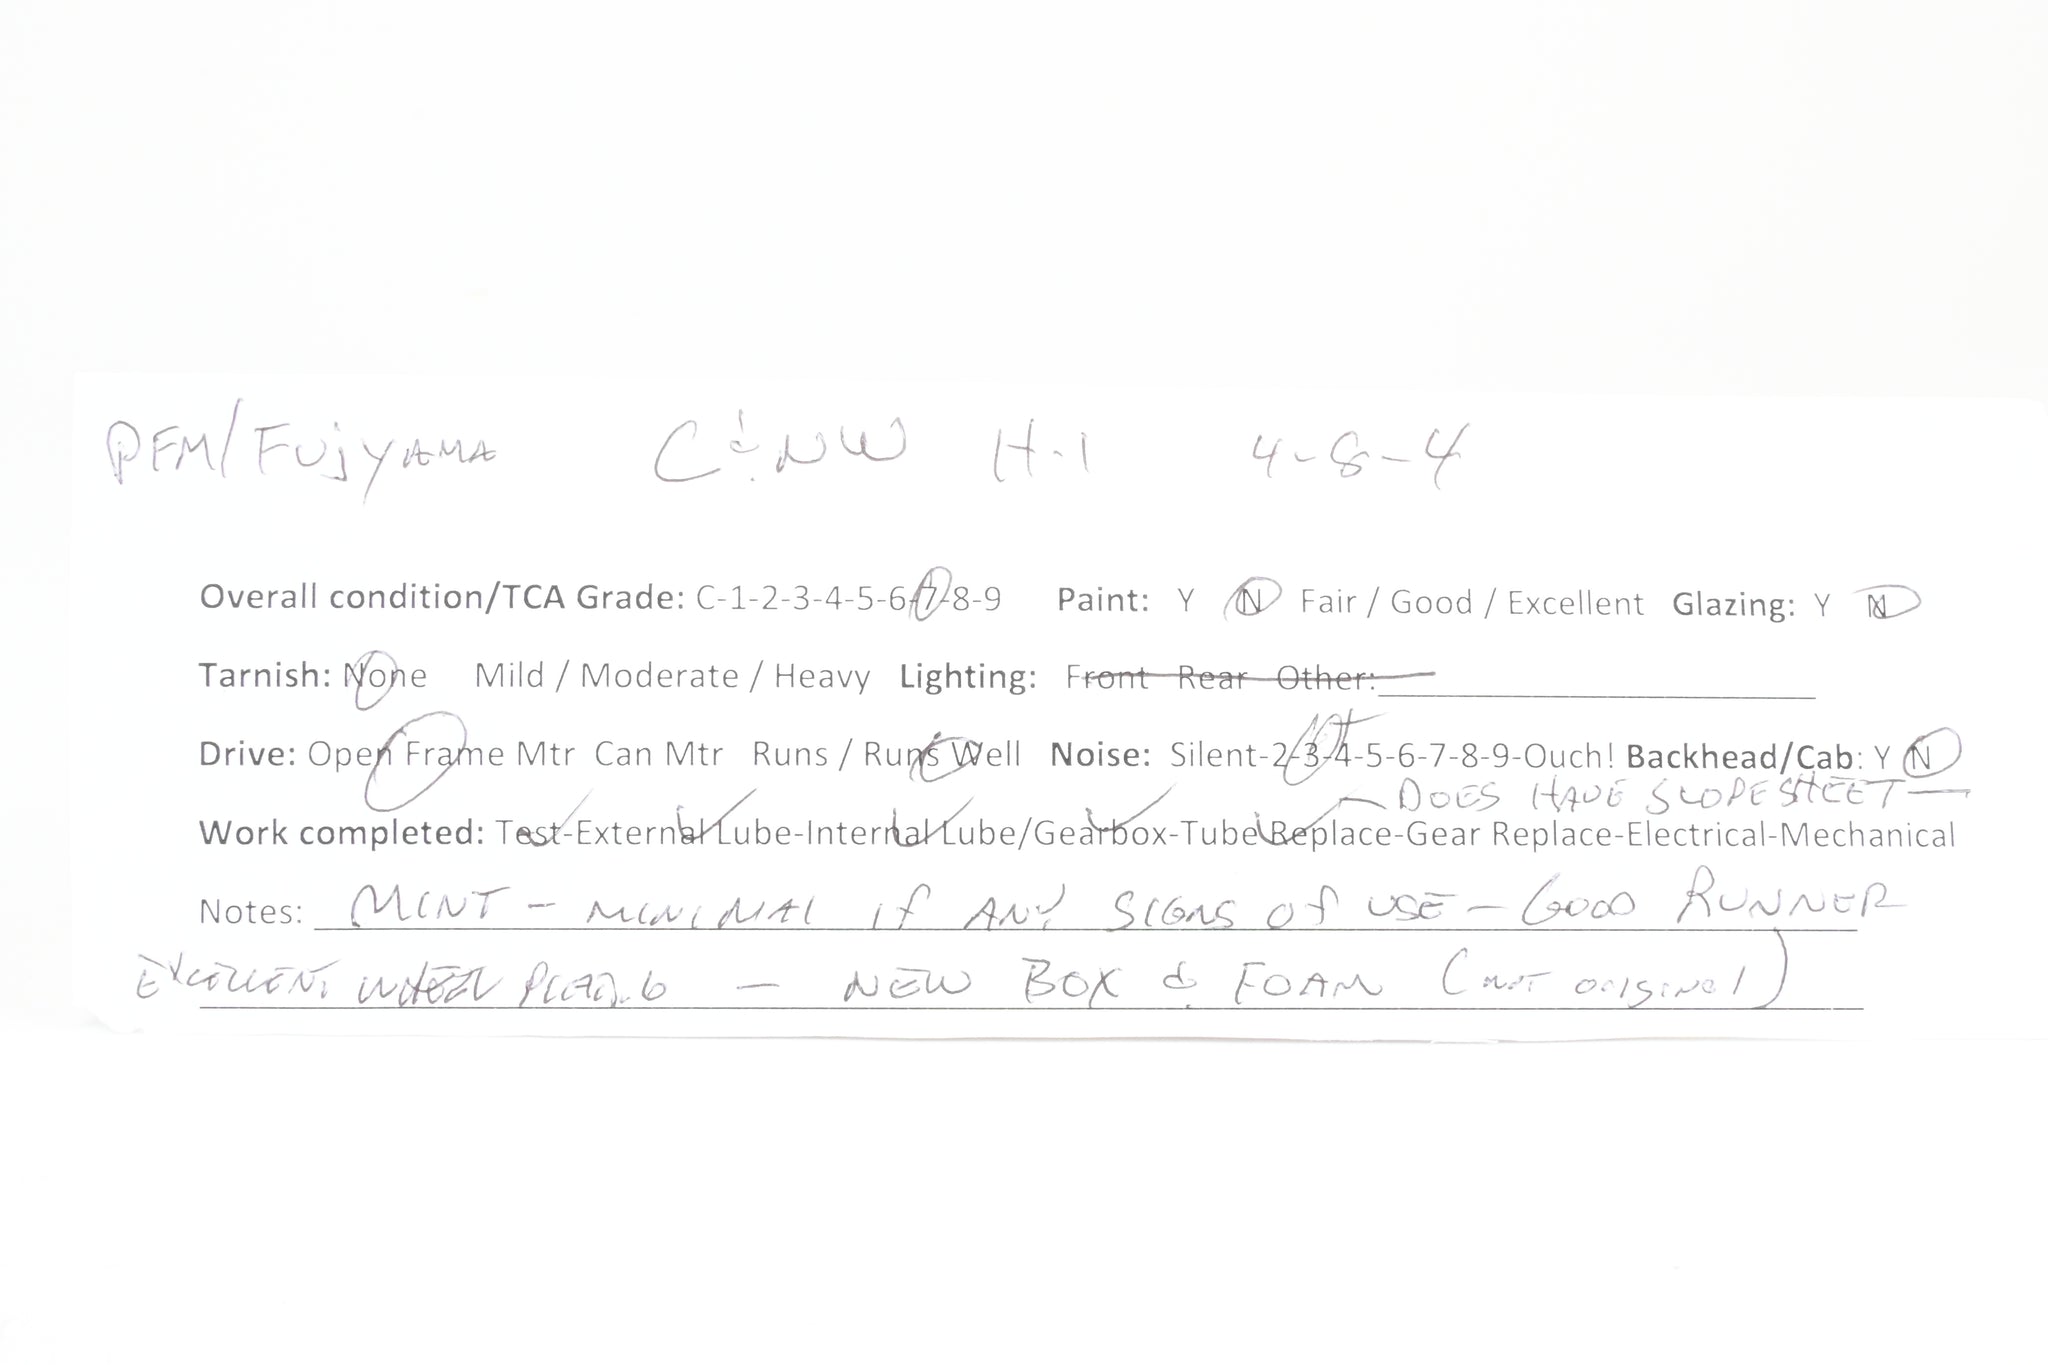 PFM/FUJIYAMA C&NW H-1 4-8-4
Overall condition/TCA Grade: C-1-2-3-4-5-6-7-8-9 Paint: Y N Fair / Good / Excellent Glazing: Y N
Tarnish: None Mild / Moderate / Heavy Lighting: Front Rear Other:
Drive: Open Frame Mtr Can Mtr Runs / Runs Well Noise: Silent-2-3-4-5-6-7-8-9-Ouch! Backhead/Cab: Y N
- DOES HAVE SLOPE SHEET -
Work completed: Test-External Lube-Internal Lube/Gearbox-Tube Replace-Gear Replace-Electrical-Mechanical
Notes: MINT - MINIMAL if ANY SIGNS Of USE - GOOD RUNNER
EXCELLENT WHEEL - NEW BOX & FOAM (NOT ORIGINAL)